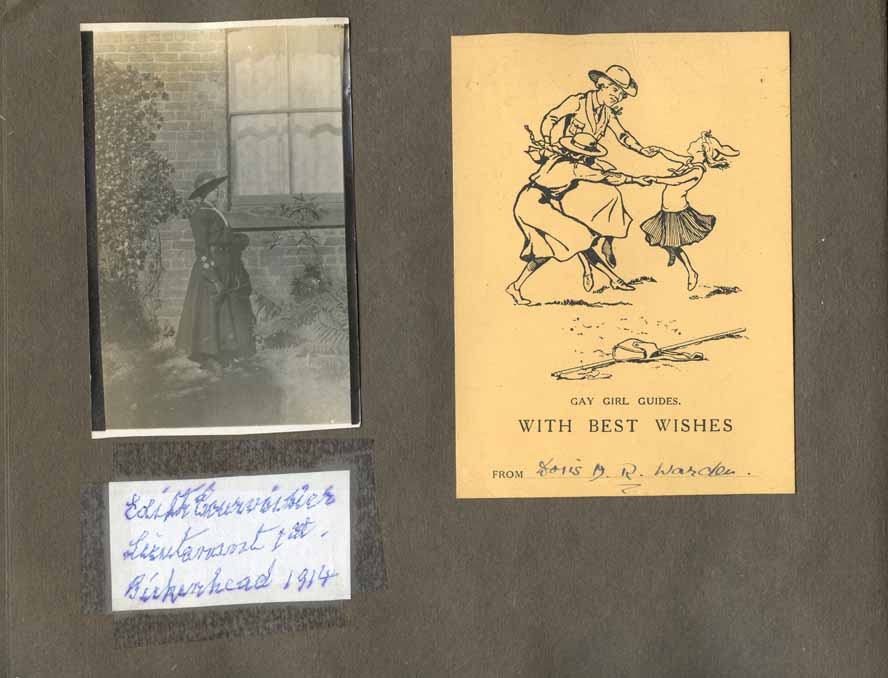 Edith Courvoisier
Lieutanant 1st.
Birkenhead 1914
GAY GIRL GUIDES.
WITH BEST WISHES
FROM Doris M. R. Warden.